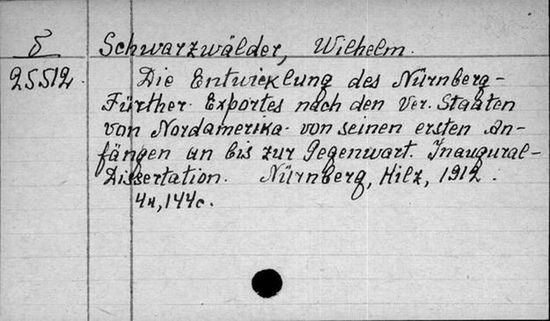 Б
25512.
Schwarzwälder, Wilhelm.
Die Entwicklung des Nürnberg-
Fürther Exportes nach den Ver. Staaten
von Nordamerika von seinen ersten An-
fängen an bis zur Gegenwart. Inaugural-
Dissertation. Nürnberg, Hilz, 1912.
4н, 144с.